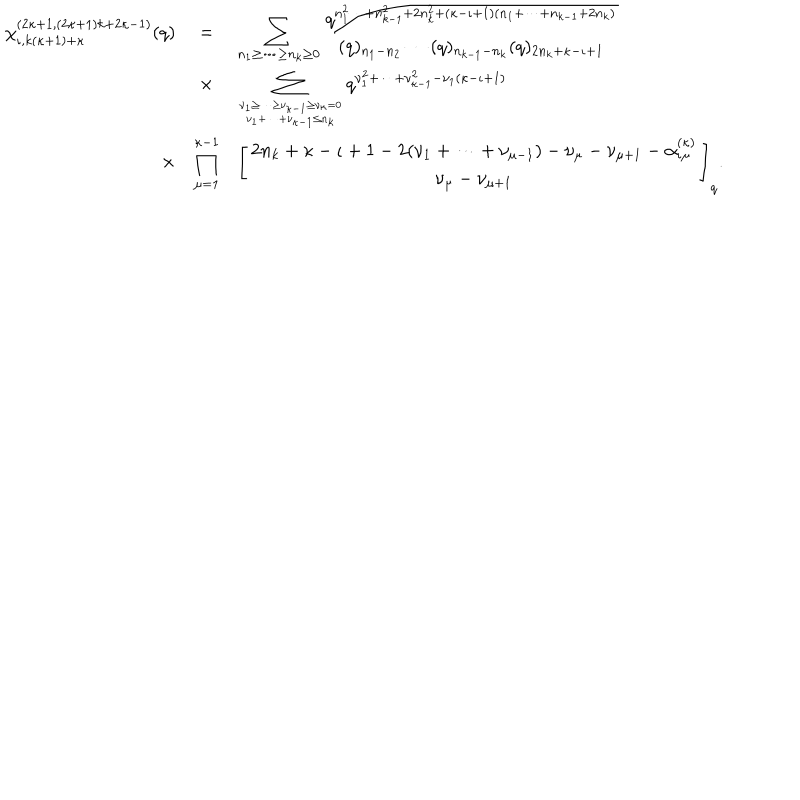 \chi_{\iota,k(\kappa+1)+\kappa}^{(2\kappa+1,(2\kappa+1)k+2\kappa-1)}(q) = \sum_{n_1\geq\cdots\geq n_k\geq 0} \frac{q^{n_1^2+\cdots+n_{k-1}^2+2n_k^2+(\kappa-\iota+1)(n_1+\cdots+n_{k-1}+2n_k)}}{(q)_{n_1-n_2}\cdots(q)_{n_{k-1}-n_k}(q)_{2n_k+\kappa-\iota+1}}
\times \sum_{\substack{\nu_1\geq\cdots\geq\nu_{\kappa-1}\geq\nu_\kappa=0 \\ \nu_1+\cdots+\nu_{\kappa-1}\leq n_k}} q^{\nu_1^2+\cdots+\nu_{\kappa-1}^2-\nu_1(\kappa-\iota+1)}
\times \prod_{\mu=1}^{\kappa-1} \left[ \begin{matrix} 2n_k+\kappa-\iota+1-2(\nu_1+\cdots+\nu_{\mu-1})-\nu_\mu-\nu_{\mu+1}-\alpha_{\iota\mu}^{(\kappa)} \\ \nu_\mu-\nu_{\mu+1} \end{matrix} \right]_q .